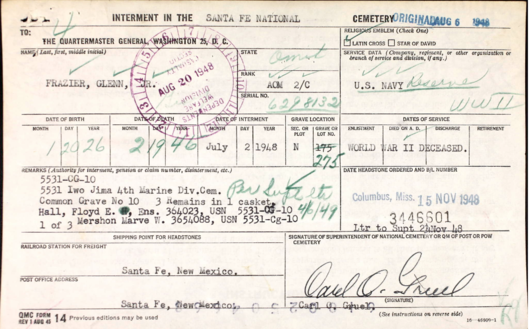 INTERMENT IN THE SANTA FE NATIONAL CEMETERY ORIGINAL AUG 5 1948
TO:
THE QUARTERMASTER GENERAL, WASHINGTON 25, D. C.
RELIGIOUS EMBLEM (Check One)
LATIN CROSS STAR OF DAVID
NAME (Last, first, middle initial)
FRAZIER, GLENN, JR.
STATE
RANK
AOM 2/C
SERIAL NO.
6298132
SERVICE DATA (Company, regiment, or other organization or branch of service and division, if any.)
U.S. NAVY Reserve
WWII
AUG 20 1948
DATE OF BIRTH DATE OF DEATH DATE OF INTERMENT GRAVE LOCATION DATES OF SERVICE
MONTH DAY YEAR MONTH DAY YEAR MONTH DAY YEAR SEC. OR PLOT GRAVE OR LOT NO. ENLISTMENT RETIREMENT
1 20 26 2 19 46 July 2 1948 N 175 WORLD WAR II DECEASED.
275
REMARKS (Authority for interment, pension or claim number, disinterment, etc.)
5531-CG-10
5531 Iwo Jima 4th Marine Div.Cem.
Common Grave No 10 3 Remains in 1 casket
Hall, Floyd E. Ens. 364023, USN 5531-CG-10
Mershon Marve W. 3654088, USN 5531-Cg-10
1 of 3
4/1/49
DATE HEADSTONE ORDERED AND B/L NUMBER
Columbus, Miss. 15 NOV 1948
3446601
Ltr to Supt 24Nov 48
SHIPPING POINT FOR HEADSTONES
SIGNATURE OF SUPERINTENDENT OF NATIONAL CEMETERY OR QM OF FOOT OR POW CEMETERY
RAILROAD STATION FOR FREIGHT
Santa Fe, New Mexico.
POST OFFICE ADDRESS
Santa Fe, New Mexico.
Carl O. Gruel
(SIGNATURE)
QMC FORM
REV 1 AUG 45 14 Previous editions may be used
(See instructions on reverse side)